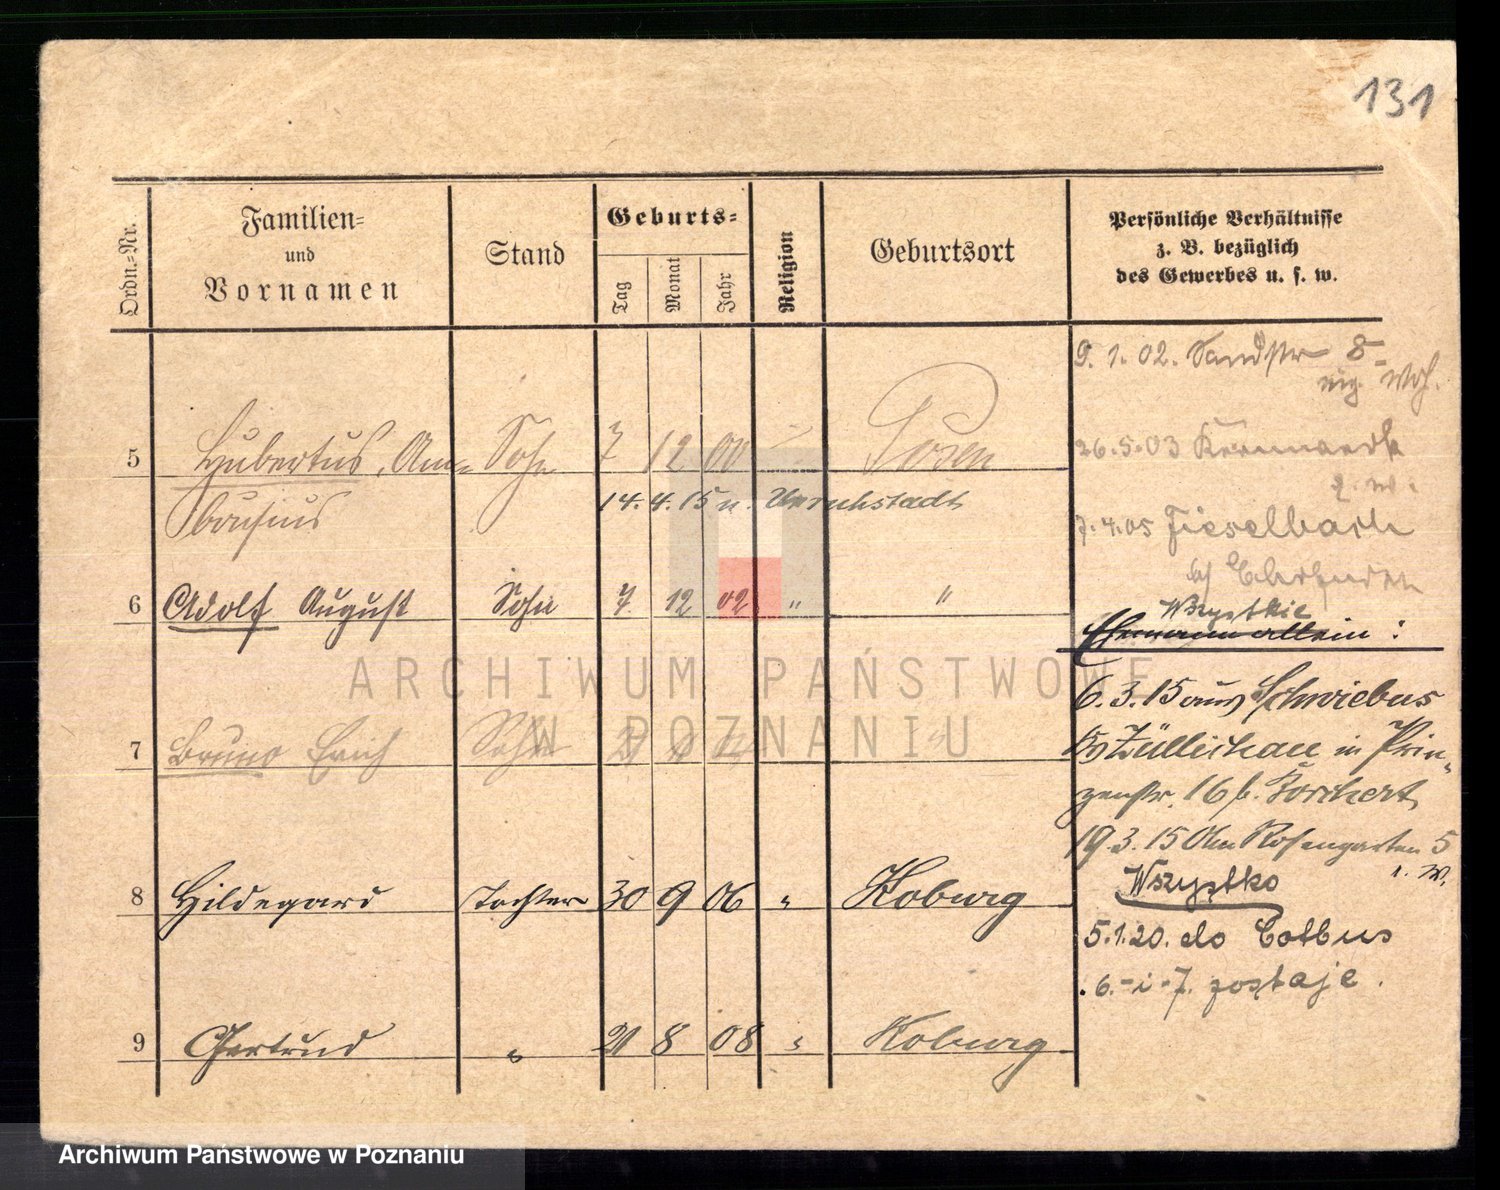 131
Ordn.=Nr.
Familien=
und
Vornamen
Stand
Geburts=
Tag
Monat
Jahr
Religion
Geburtsort
Persönliche Verhältnisse
z. B. bezüglich
des Gewerbes u. s. w.
9. 1. 02. Sandstr 8
5 Hubertus, Am= Sohn 7 12 00 Posen
brosius
14. 4. 15 n. Unruhstadt
26. 5. 03
7. 4. 05
6 Adolf August Sohn 7. 12 02 " "
Wszystkie
Ehemann allein :
6. 3. 15 aus Schwiebus
Züllichau in Prin=
zenstr. 16 b. Borchert
7 Bruno Erich Sohn
19. 3. 15 Am Rosengarten 5
8 Hildegard Tochter 30 9 06 " Koburg
Wszystko
5. 1. 20. do Cotbus
6. - i - 7. zostaje.
9 Gertrud " 21 8 08 " Koburg
ARCHIWUM PAŃSTWOWE
W POZNANIU
Archiwum Państwowe w Poznaniu